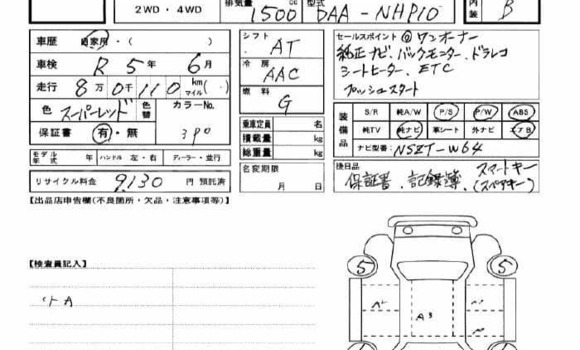 2WD・4WD
排気量 1500 cc
型式 DAA-NHP10
内装 B
車歴 自家用・( )
シフト AT
セールスポイント ワンオーナー
純正ナビ、バックモニター、ドラレコ
シートヒーター、ETC
プッシュスタート
車検 R 5年 6月
冷房 AAC
走行 8万0千110 km マイル( )
燃料 G
色 スーパーレッド 色替 カラーNo. 3P0
保証書 有・無
乗車定員 名
積載量 kg
総重量 kg
装備品 S/R 純A/W P/S P/W ABS
純TV 純ナビ 革シート 外ナビ エアB
ナビ型番 NSZT-W64
モデル年式 年 ハンドル 左・右 ディーラー・並行
名変期限 月 日
後日品 保証書、記録簿、スマートキー
(スペアキー)
リサイクル料金 9,130 円 預託済
【出品店申告欄(不良箇所・欠品・注意事項等)】
【検査員記入】
5 5
A3